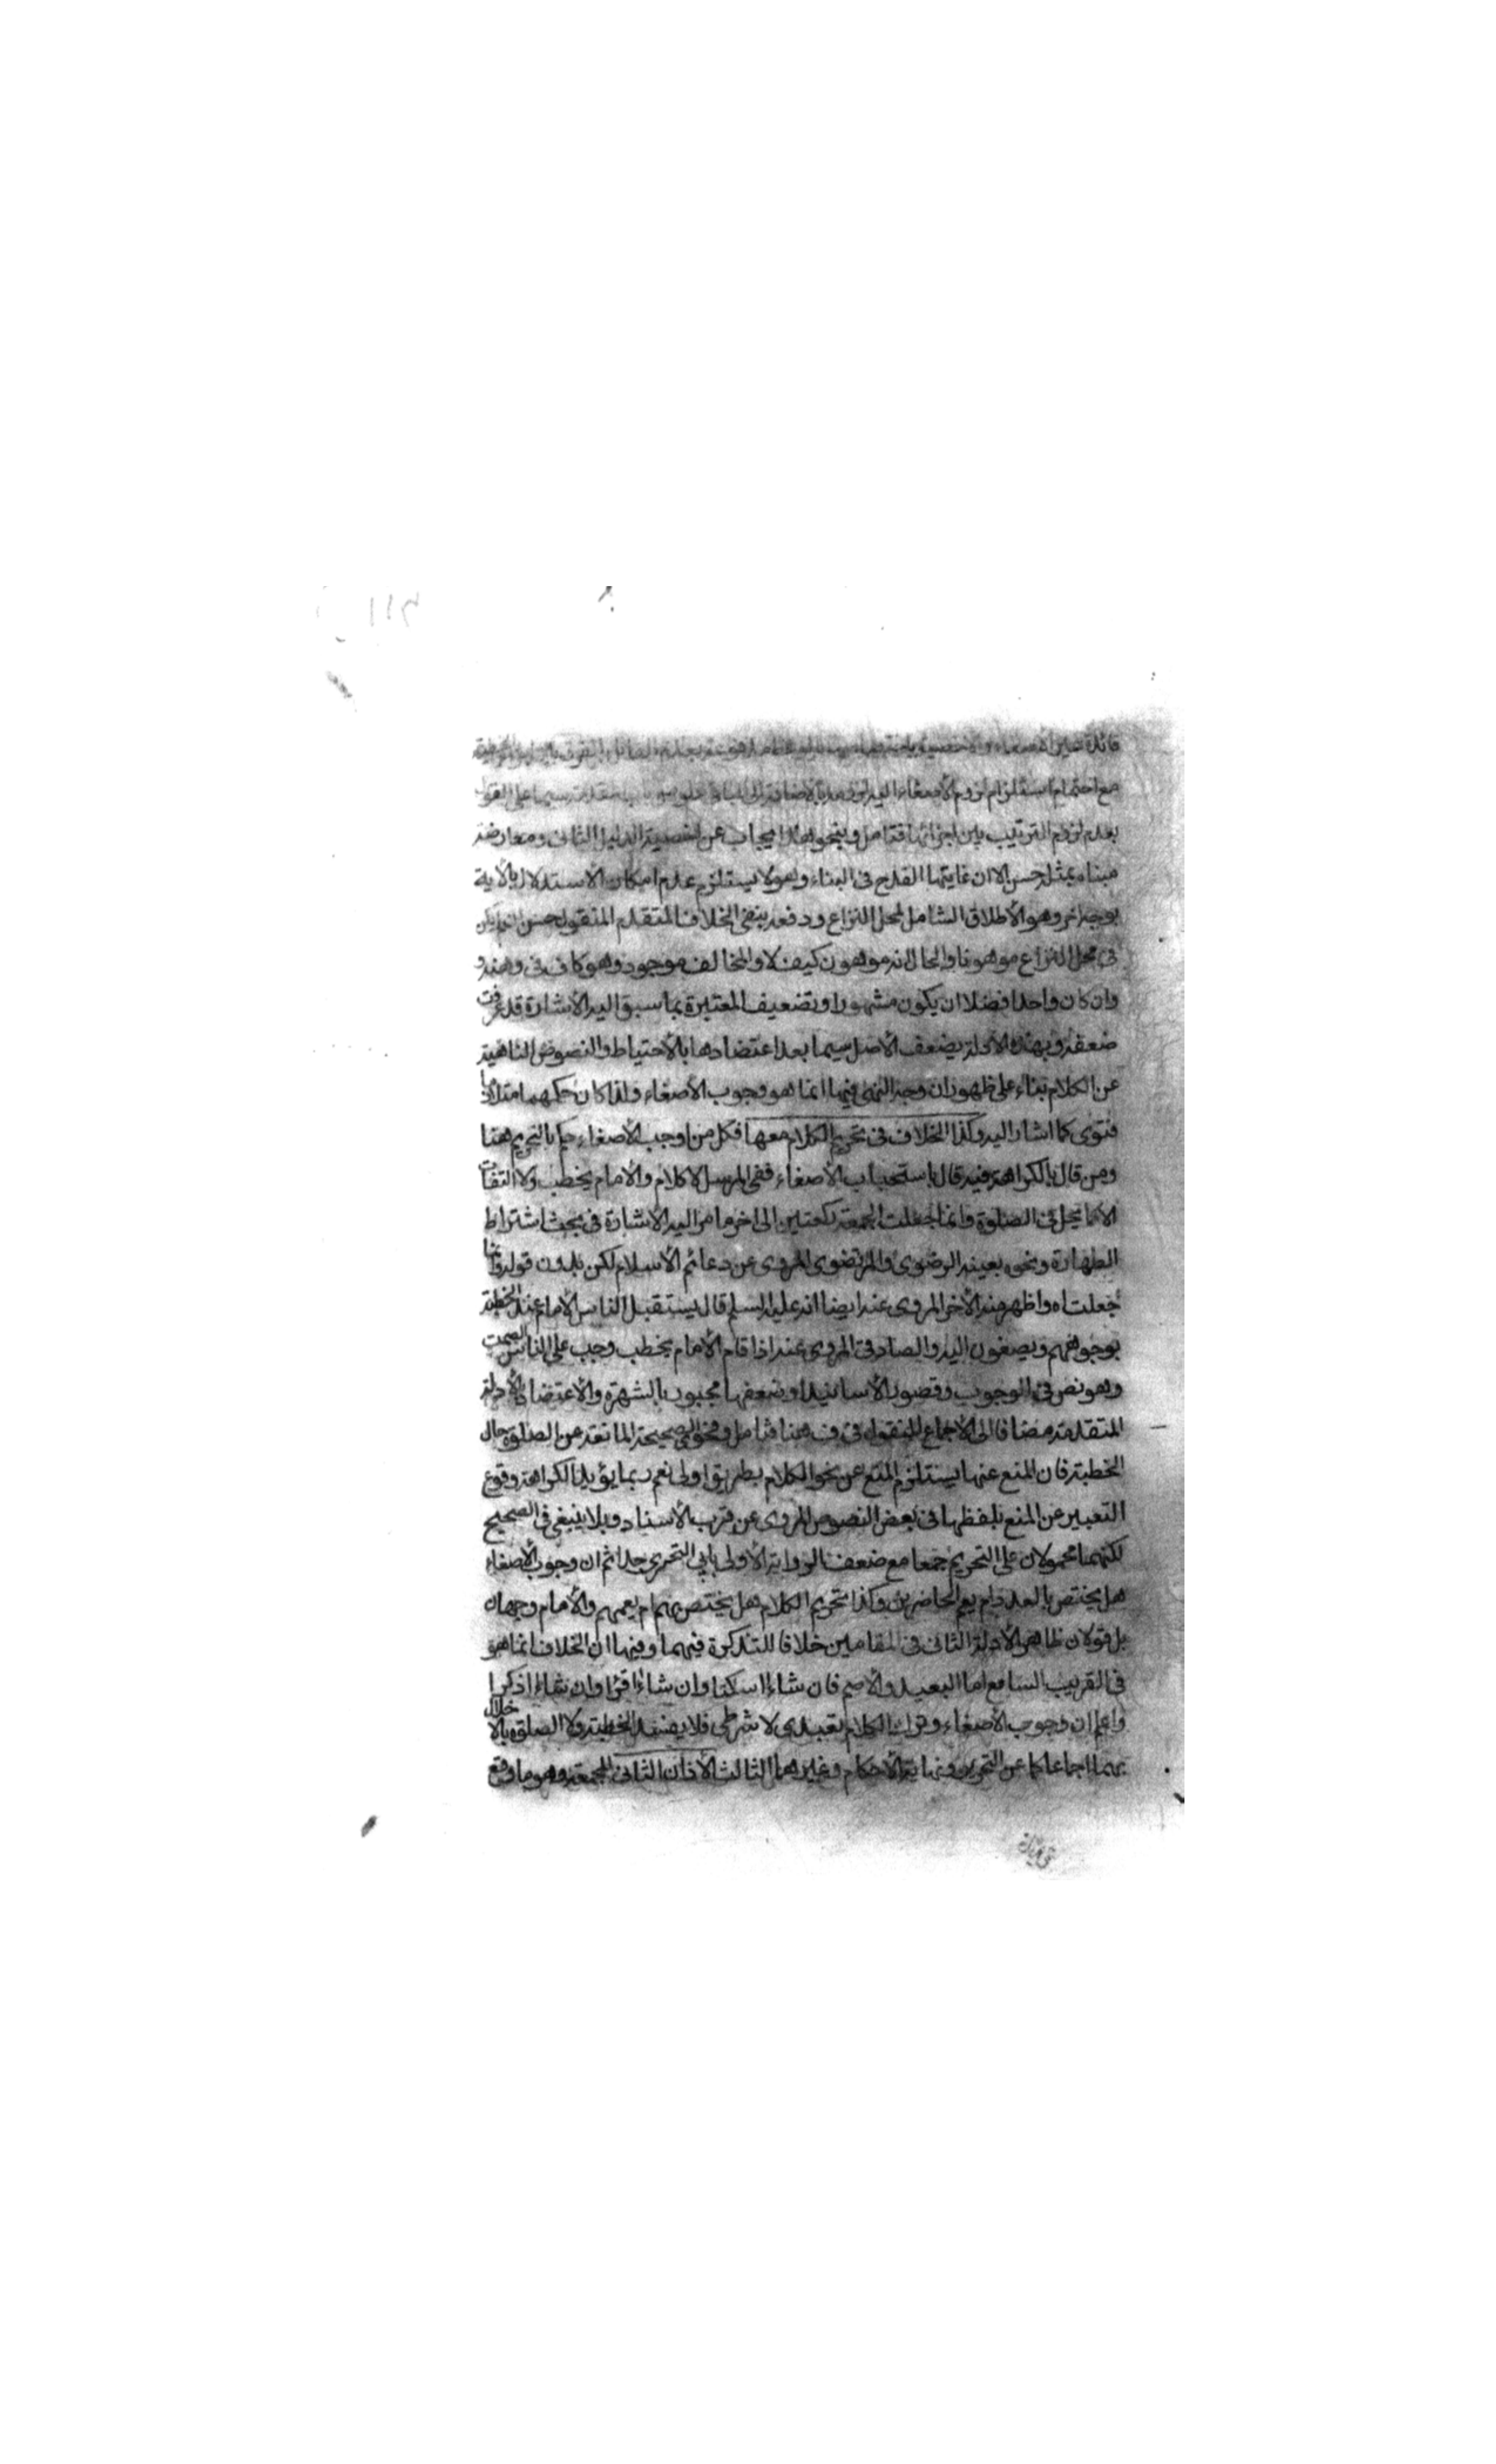 مع احتمال استلزام لزوم الأصغاء اليه لزومه بالأضافة الى سيما على القول
بعدم لزوم الترتيب بين اجزائها فتامل وبنحو هذا يجاب عن الدليل الثانى ومعارضة
مبناه بمثله حسن الا ان غايتها القدح فى البناء وهو لا يستلزم عدم امكان الأستدلال بالأية
بوجه اخر وهو الأطلاق الشامل لمحل النزاع ودفعه بنفى الخلاف المتقدم المنقول حسن
فى محل النزاع موهونا والحال انه موهون كيف لا والمخالف موجود وهو كاف فى وهنه و
وان كان واحدا فضلا ان يكون مشهورا وتضعيف المعتبرة بما سبق اليه الأشارة قد عرفت
ضعفه وبهذه الأدلة يضعف الأصل سيما بعد اعتضادها بالأحتياط والنصوص الناهية
عن الكلام بناء على ظهور ان وجه النهى فيها انما هو وجوب الأصغاء ولذا كان حكمهما متلازما
فتوى كما اشار اليه وكذا الخلاف فى تحريم الكلام معها فكل من اوجب الأصغاء حكم بالتحريم هنا
ومن قال بالكراهة فيه قال باستحباب الأصغاء ففى المرسل لا كلام والأمام يخطب ولا التفات
الا كما يحل فى الصلوة وانما جعلت الجمعة ركعتين الى اخر ما مر اليه الأشارة فى بحث اشتراط
الطهارة ونحوه بعينه الرضوى والمرتضوى المروى عن دعائم الأسلام لكن بدون قوله وانما
جعلت اه واظهر منه الأخر المروى عنه ايضا انه عليه السلم قال يستقبل الناس الأمام عند الخطبة
بوجوههم ويصغون اليه والصادقى المروى عنه اذا قام الأمام يخطب وجب على الناس الصمت
وهو نص فى الوجوب وقصور الأسانيد او ضعفها مجبور بالشهرة والأعتضاد بالأدلة
المتقدمة مضافا الى الأجماع المنقول فى ف هنا فتامل وفحوى الصحيحة المانعة عن الصلوة حال
الخطبة فان المنع عنها يستلزم المنع عن نحو الكلام بطريق اولى نعم ربما يؤيد الكراهة وقوع
التعبير عن المنع بلفظها فى بعض النصوص المروى عن قرب الأسناد وبلا ينبغى فى الصحيح
لكنهما محمولان على التحريم جمعا مع ضعف الرواية الأولى بابى البخترى جدا ثم ان وجوب الأصغاء
هل يختص بالعدد ام يعم الحاضرين وكذا تحريم الكلام هل يختص بهم ام يعمهم والأمام وجهان
بل قولان ظاهر الأدلة الثانى فى المقامين خلافا للتذكرة فيهما وفيها ان الخلاف انما هو
فى القريب السامع اما البعيد والأصم فان شاءا سكتا وان شاءا قرئا وان شاءا ذكرا
واعلم ان وجوب الأصغاء وترك الكلام تعبدى لا شرطى فلا يفسد الخطبة ولا الصلوة بالاخلال
بهما اجماعا كما عن التحرير ونهاية الأحكام وغيرهما الثالث الأذان الثانى للجمعة وهو ما وقع